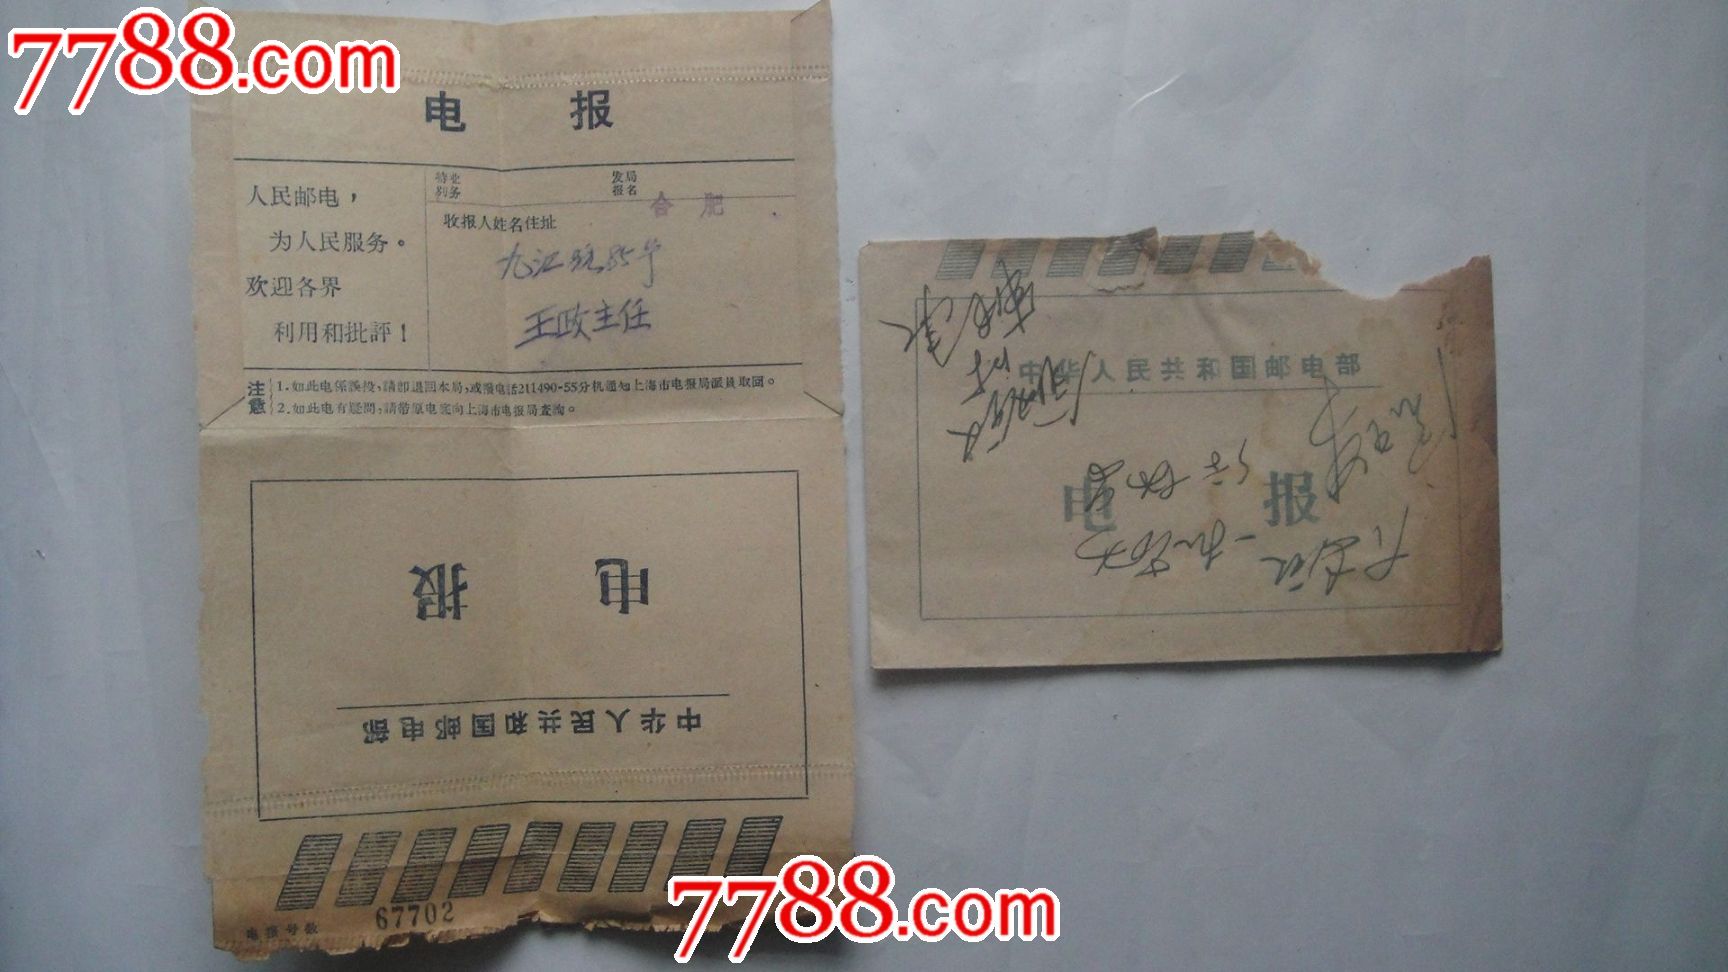 7788.com
电 报
人民邮电，
为人民服务。
欢迎各界
利用和批評！
特业
别务
发局
报名
合 肥
收报人姓名住址
九江路85号
王政主任
注意
1.如此电系誤投，請即退回本局，或撥电话211490-55分机通知上海市电报局派員取回。
2.如此电有疑問，請带原电底向上海市电报局查詢。
电 报
中华人民共和国邮电部
电报号数 67702
中华人民共和国邮电部
电 报
7788.com